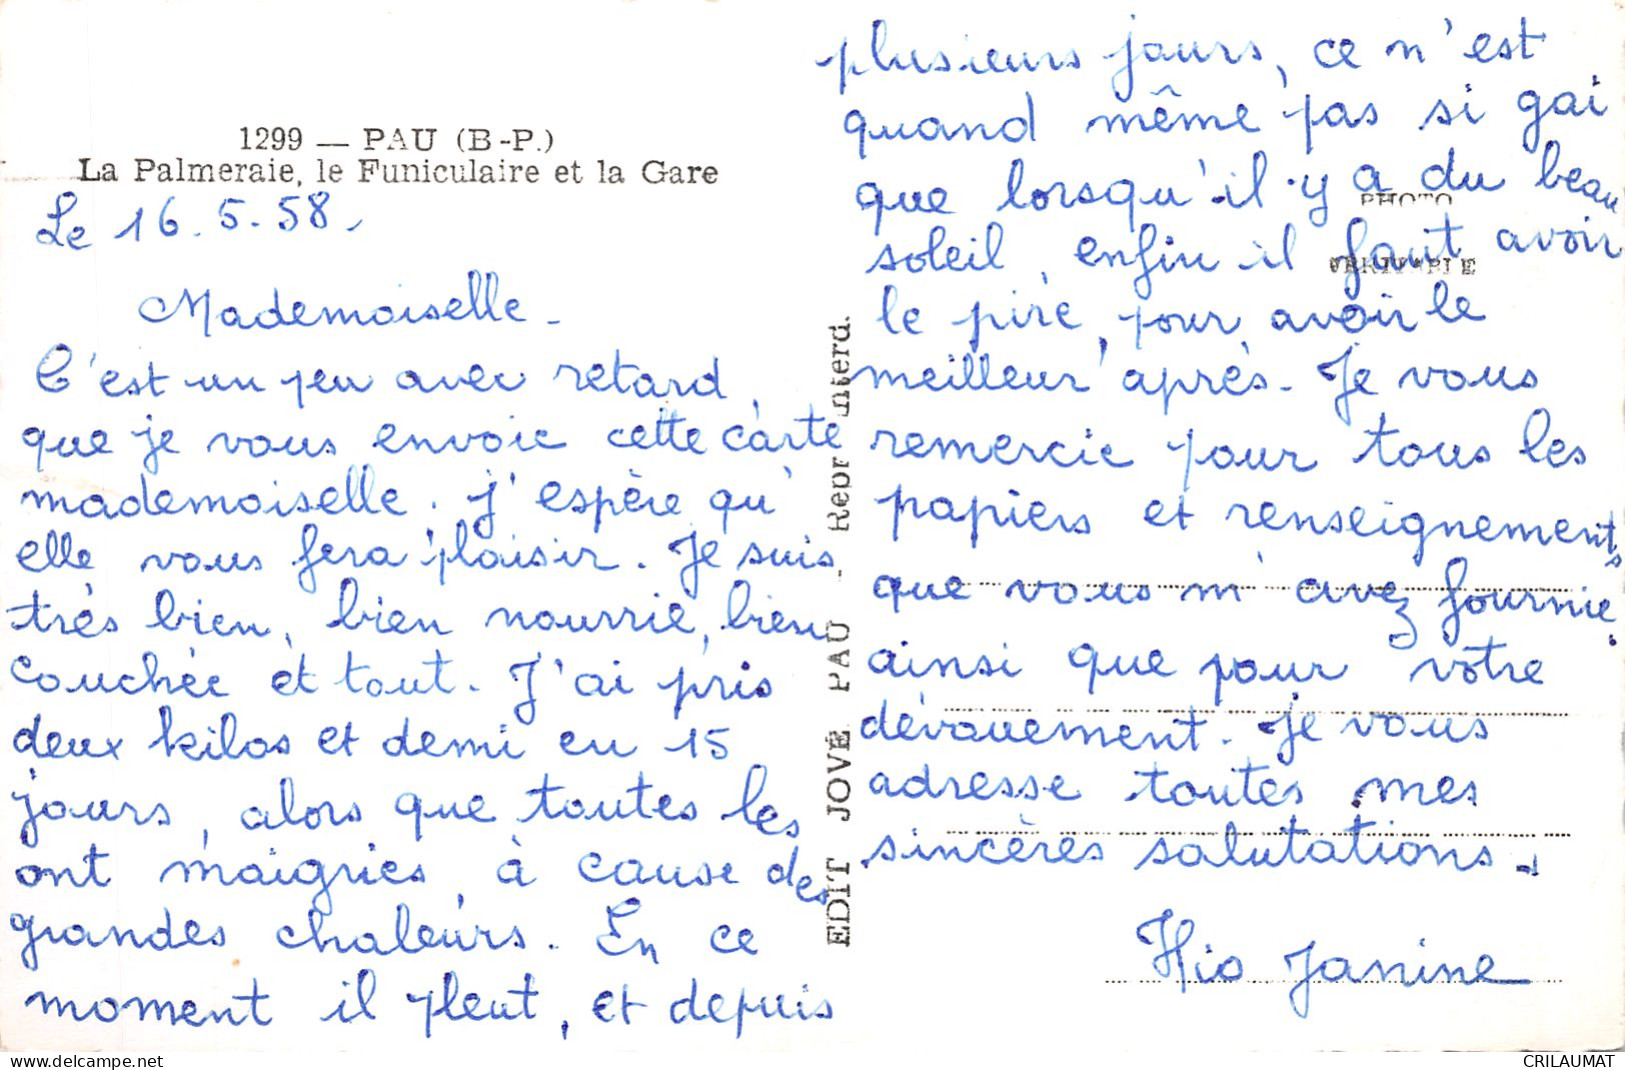 1299 — PAU (B-P.)
La Palmeraie, le Funiculaire et la Gare
Le 16.5.58.
Mademoiselle.
C'est un peu avec retard,
que je vous envoie cette carte
mademoiselle. J'espère qu'
elle vous fera plaisir. Je suis
très bien, bien nourrie, bien
couchée et tout. J'ai pris
deux kilos et demi en 15
jours, alors que toutes les
ont maigries, à cause des
grandes chaleurs. En ce
moment il pleut, et depuis
EDIT JOVÉ PAU - Repr interd.
plusieurs jours, ce n'est
quand même pas si gai
que lorsqu'il y a du beau
PHOTO
soleil, enfin il faut avoir
VERITABLE
le pire, pour avoir le
meilleur après. Je vous
remercie pour tous les
papiers et renseignements
que vous m'avez fournie.
ainsi que pour votre
dévouement. Je vous
adresse toutes mes
sincères salutations.
Hio Janine
www.delcampe.net
CRILAUMAT